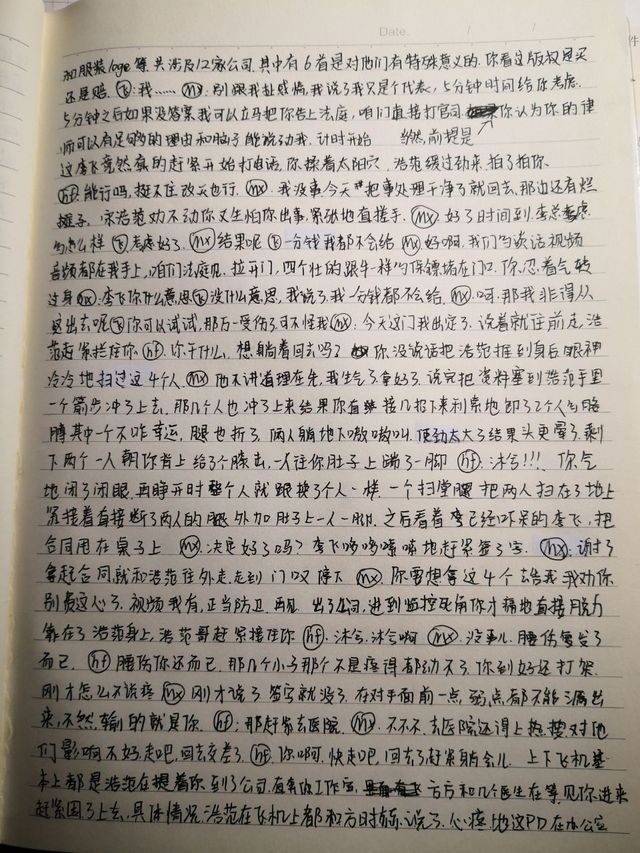 Date.
和服装loge等,共涉及12家公司.其中有6首是对他们有特殊意义的.你看这版权是买
还是赔. 飞:我…… mx:别跟我扯感情,我说了我只是个代表,5分钟时间给你考虑.
5分钟之后如果没答案我可以立马把你告上法庭,咱们直接打官司 你认为你的律
师可以有足够的理由和脑子能说动我.计时开始 当然,前提是
这李飞竟然真的赶紧开始打电话,你揉着太阳穴,浩范缓过劲来,拍了拍你.
hf:能行吗,挺不住改天也行. mx:我没事今天把事处理干净了就回去,那边还有烂
摊子,宋浩范劝不动你又生怕你出事,紧张地直搓手. mx 好了时间到.李总考虑
的怎么样 飞 考虑好了. mx 结果呢 飞 一分钱我都不会给 mx 好啊,我们的谈话视频
音频都在我手上,咱们法庭见.拉开门,四个壮的跟牛一样的保镖堵在门口.你忍着气转
过身 mx:李飞你什么意思 飞 没什么意思,我说了我一分钱都不会给. mx:呵.那我非得从
这出去呢 飞 你可以试试,那万一受伤了可不怪我 mx:今天这门我出定了.说着就往前走,浩
范赶紧拦住你 hf:你干什么,想躺着回去吗? 你没说话把浩范推到身后眼神
冷冷地扫过这4个人. mx 他不讲道理在先,我生气了拿好了.说完把资料塞到浩范手里
一个箭步冲了上去,那几个人也冲了上来结果你有 接几招下来利索地卸了2个人的胳
膊其中一个不咋幸运,腿也折了.俩人躺地下嗷嗷叫.使劲太大了结果头更晕了,剩
下两个一人朝你背上给了个膝击,一人往你肚子上踹了一脚 hf:沐兮!!! 你气
地闭了闭眼.再睁开时整个人就跟换了个人一样.一个扫堂腿把两人扫在了地上
紧接着直接断了两人的腿外加肚子上一人一脚.之后看着 已经吓呆的李飞,把
合同甩在桌子上 mx:决定好了吗?李飞哆哆嗦嗦地赶紧签了字. mx:谢了
拿起合同就和浩范往外走,走到门口又停下 mx:你要想拿这4个去告我我劝你
别费这心了.视频我有,正当防卫.再见.出了公司,进到监控死角你才痛地直接脱力
靠在了浩范身上,浩范哥赶紧接住你 hf:沐兮.沐兮啊 mx:没事儿.腰伤复发了
而已. hf 腰伤你还而已.那几个小子那个不是疼得都动不了,你到好还打架.
刚才怎么不说疼 mx 刚才说了签字就没了.在对手面前一点弱点都不能漏出
来,不然输的就是你. hf:那赶紧去医院. mx:不不不.去医院还得上热搜对他
们影响不好.走吧,回去交差了. hf.你啊.快走吧,回去了赶紧躺会儿. 上下飞机基
本上都是浩范在提着你.到了公司,直奔你工作室, 方方和几个医生在等,见你进来
赶紧围了上去,具体情况,浩范在飞机上都和方时赫说了.心疼地这PD在办公室